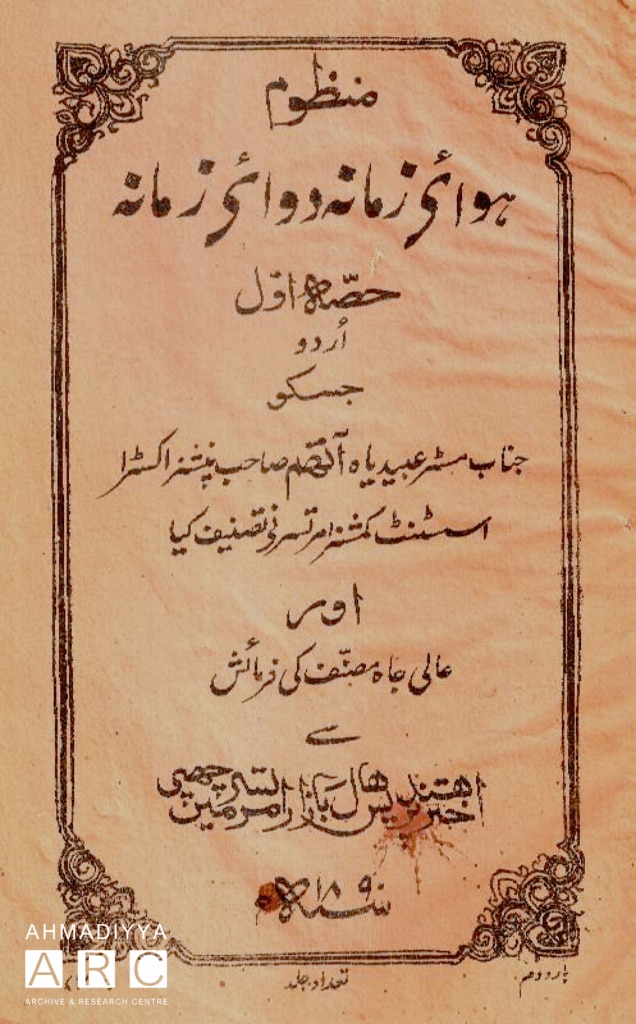 منظوم
ہوائی زمانہ دوائی زمانہ
حصّہ اوّل
اُردو
جسکو
جناب مسٹر عبدیاہ آتھم صاحب پنشنر اکسٹرا
اسسٹنٹ کمشنر امرتسر نے تصنیف کیا
اور
عالی جاہ مصنّف کی فرمائش
سے
پریس ھال بازار امرتسر مین چھپی
سنہ ۱۸۹۰
بار دوم
تعداد جلد
AHMADIYYA
ARC
ARCHIVE & RESEARCH CENTRE